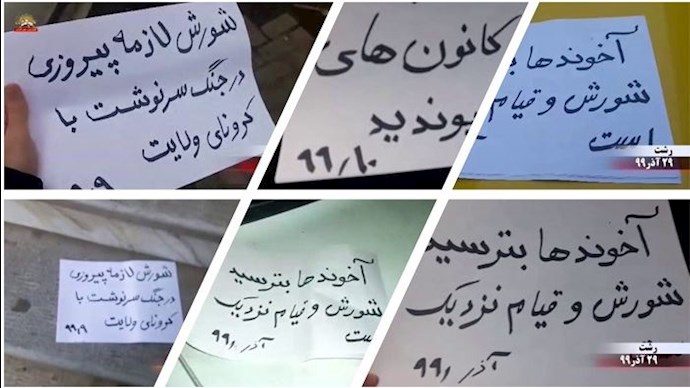 شورش لازمه پیروزی
در جنگ سرنوشت با
کرونای ولایت
کانون های
۹۹٫۱۰
آخوندها
شورش و قیام
است
رشت
۲۹ آذر ۹۹
شورش لازمه پیروزی
در جنگ سرنوشت با
کرونای ولایت
۹۹٫۹
آخوندها بترسید
شورش و قیام نزدیک
است
آذر ۹۹
آخوندها بترسید
شورش و قیام نزدیک
آذر ۹۹
رشت
۲۹ آذر ۹۹